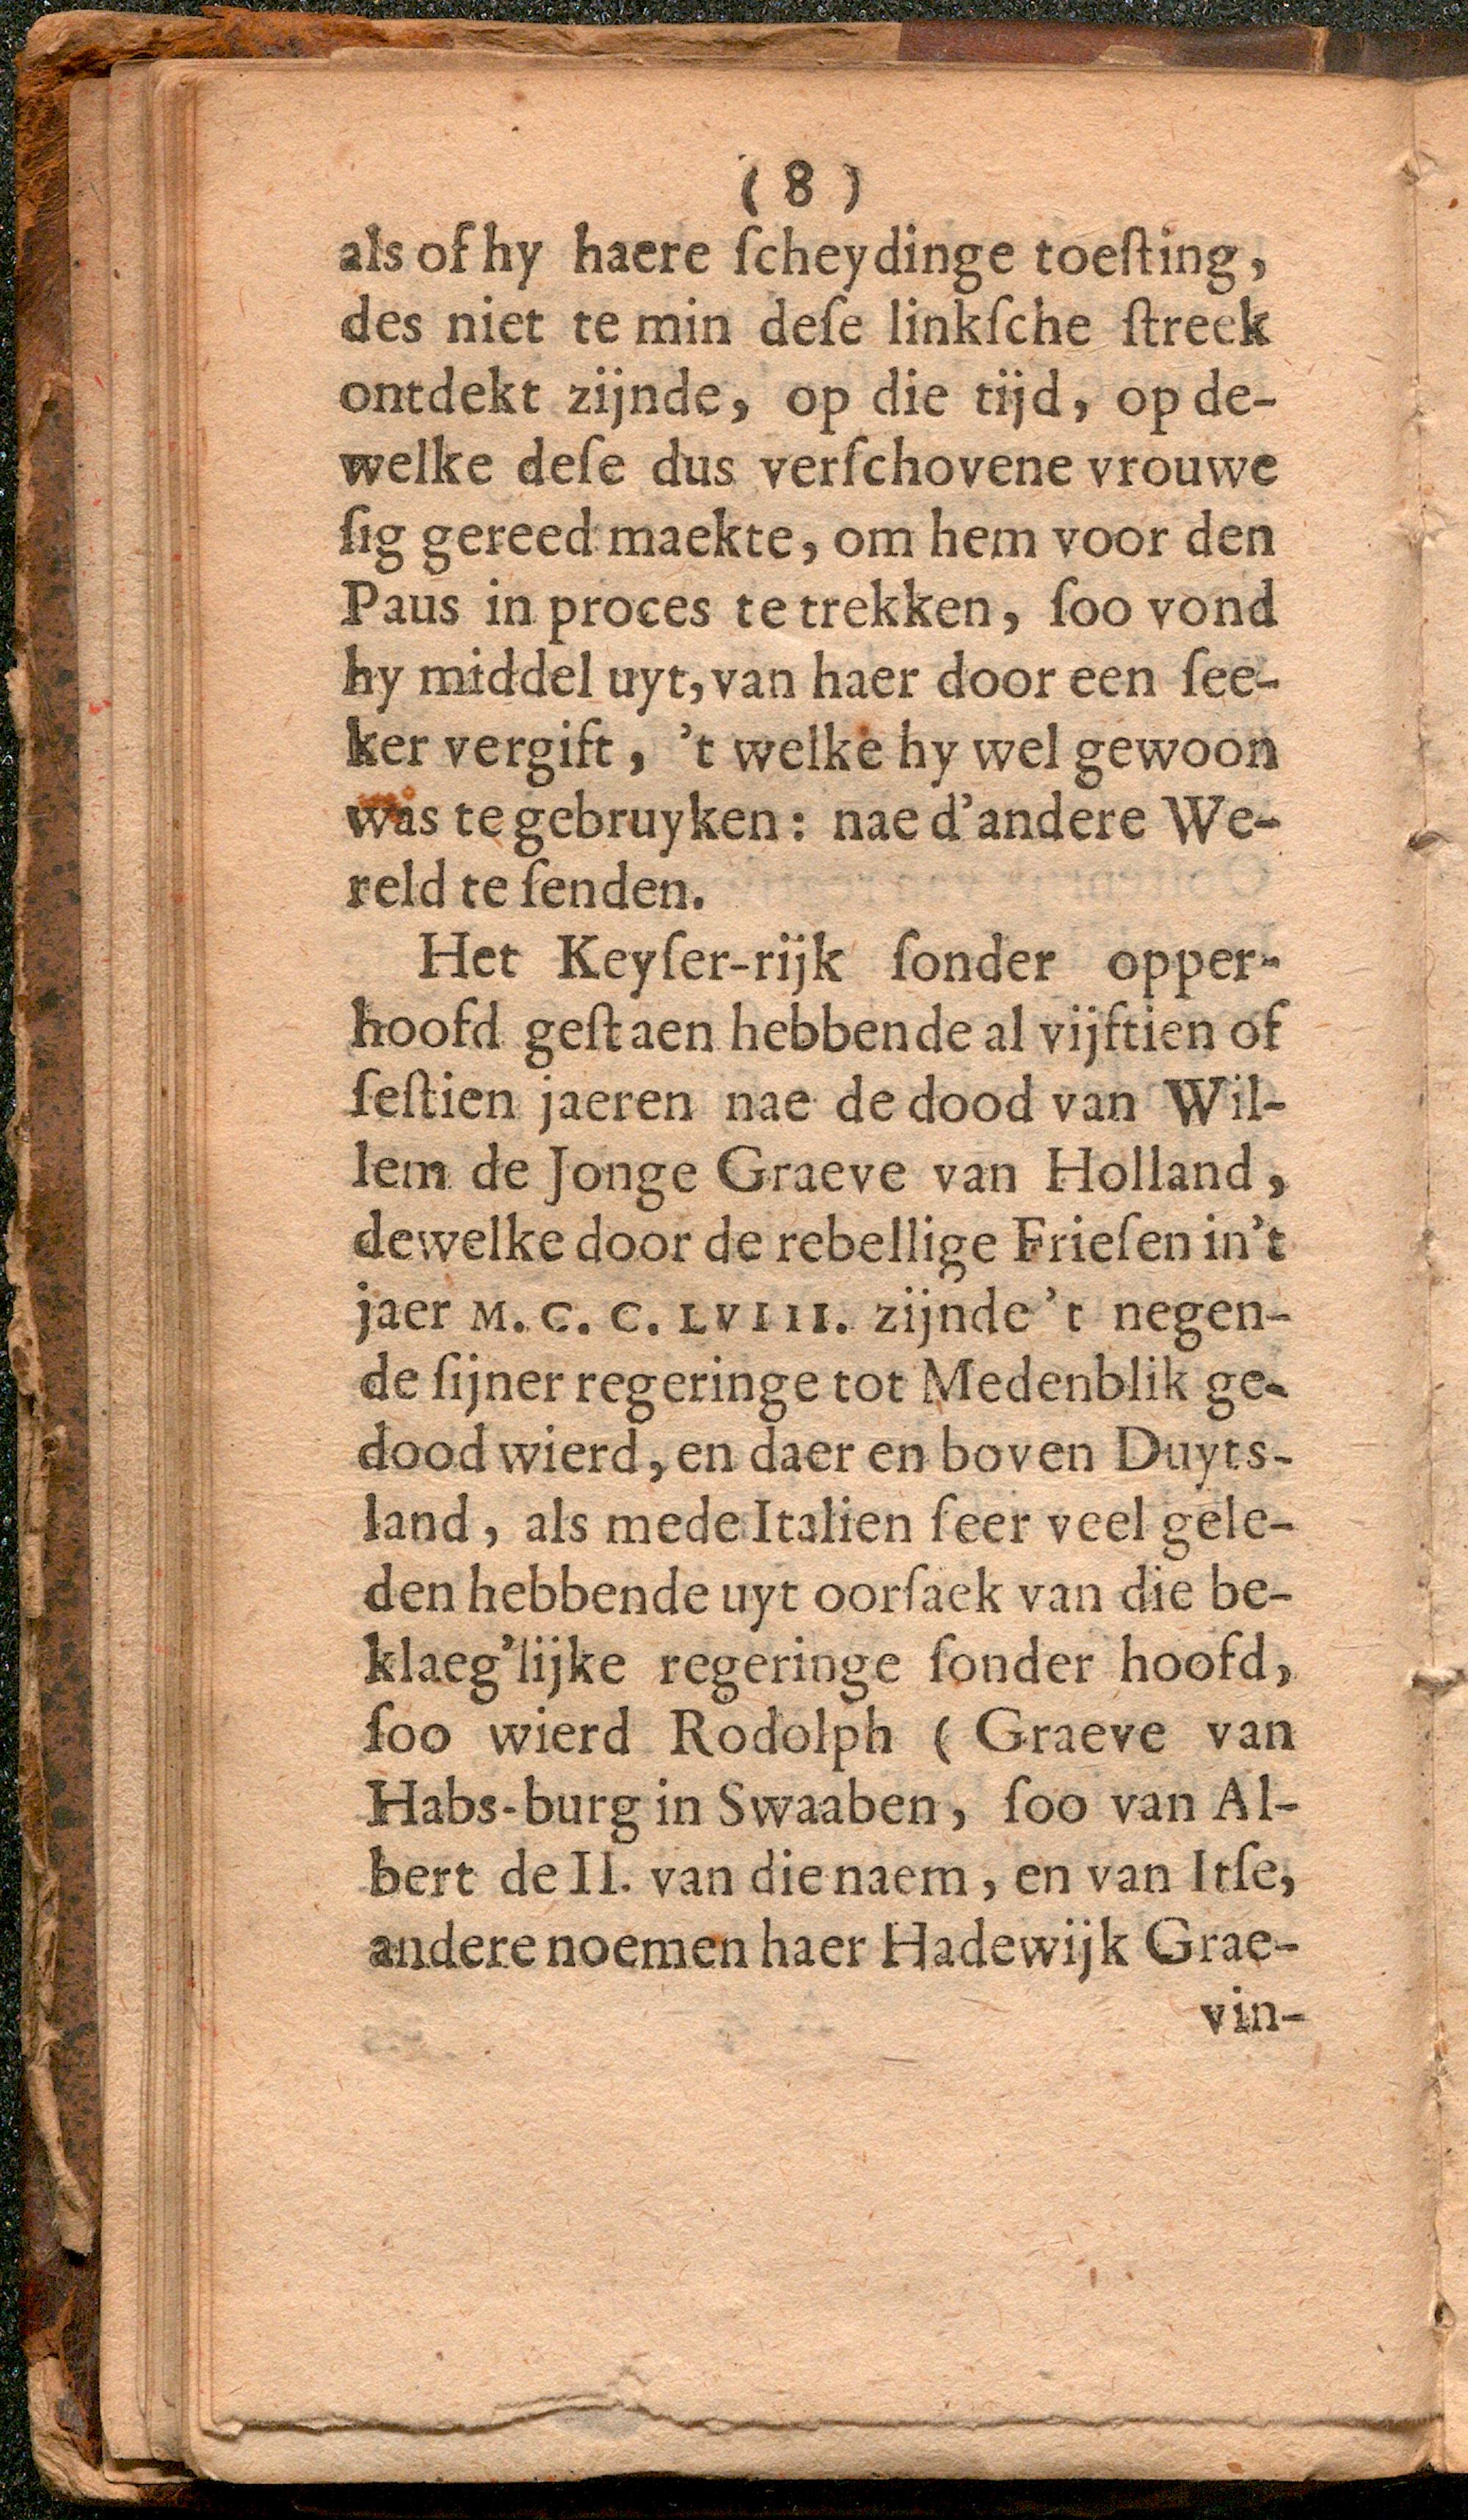 ( 8 )
als of hy haere ſcheydinge toeſting,
des niet te min deſe linkſche ſtreek
ontdekt zijnde, op die tijd, op de-
welke deſe dus verſchovene vrouwe
ſig gereed maekte, om hem voor den
Paus in proces te trekken, ſoo vond
hy middel uyt, van haer door een ſee-
ker vergift, 't welke hy wel gewoon
was te gebruyken: nae d'andere We-
reld te ſenden.
Het Keyſer-rijk ſonder opper-
hoofd geſtaen hebbende al vijftien of
ſeſtien jaeren nae de dood van Wil-
lem de Jonge Graeve van Holland,
dewelke door de rebellige Frieſen in't
jaer M. C. C. LVIII. zijnde 't negen-
de ſijner regeringe tot Medenblik ge-
dood wierd, en daer en boven Duyts-
land, als mede Italien ſeer veel gele-
den hebbende uyt oorſaek van die be-
klaeg'lijke regeringe ſonder hoofd,
ſoo wierd Rodolph ( Graeve van
Habs-burg in Swaaben, ſoo van Al-
bert de II. van die naem, en van Itſe,
andere noemen haer Hadewijk Grae-
vin-